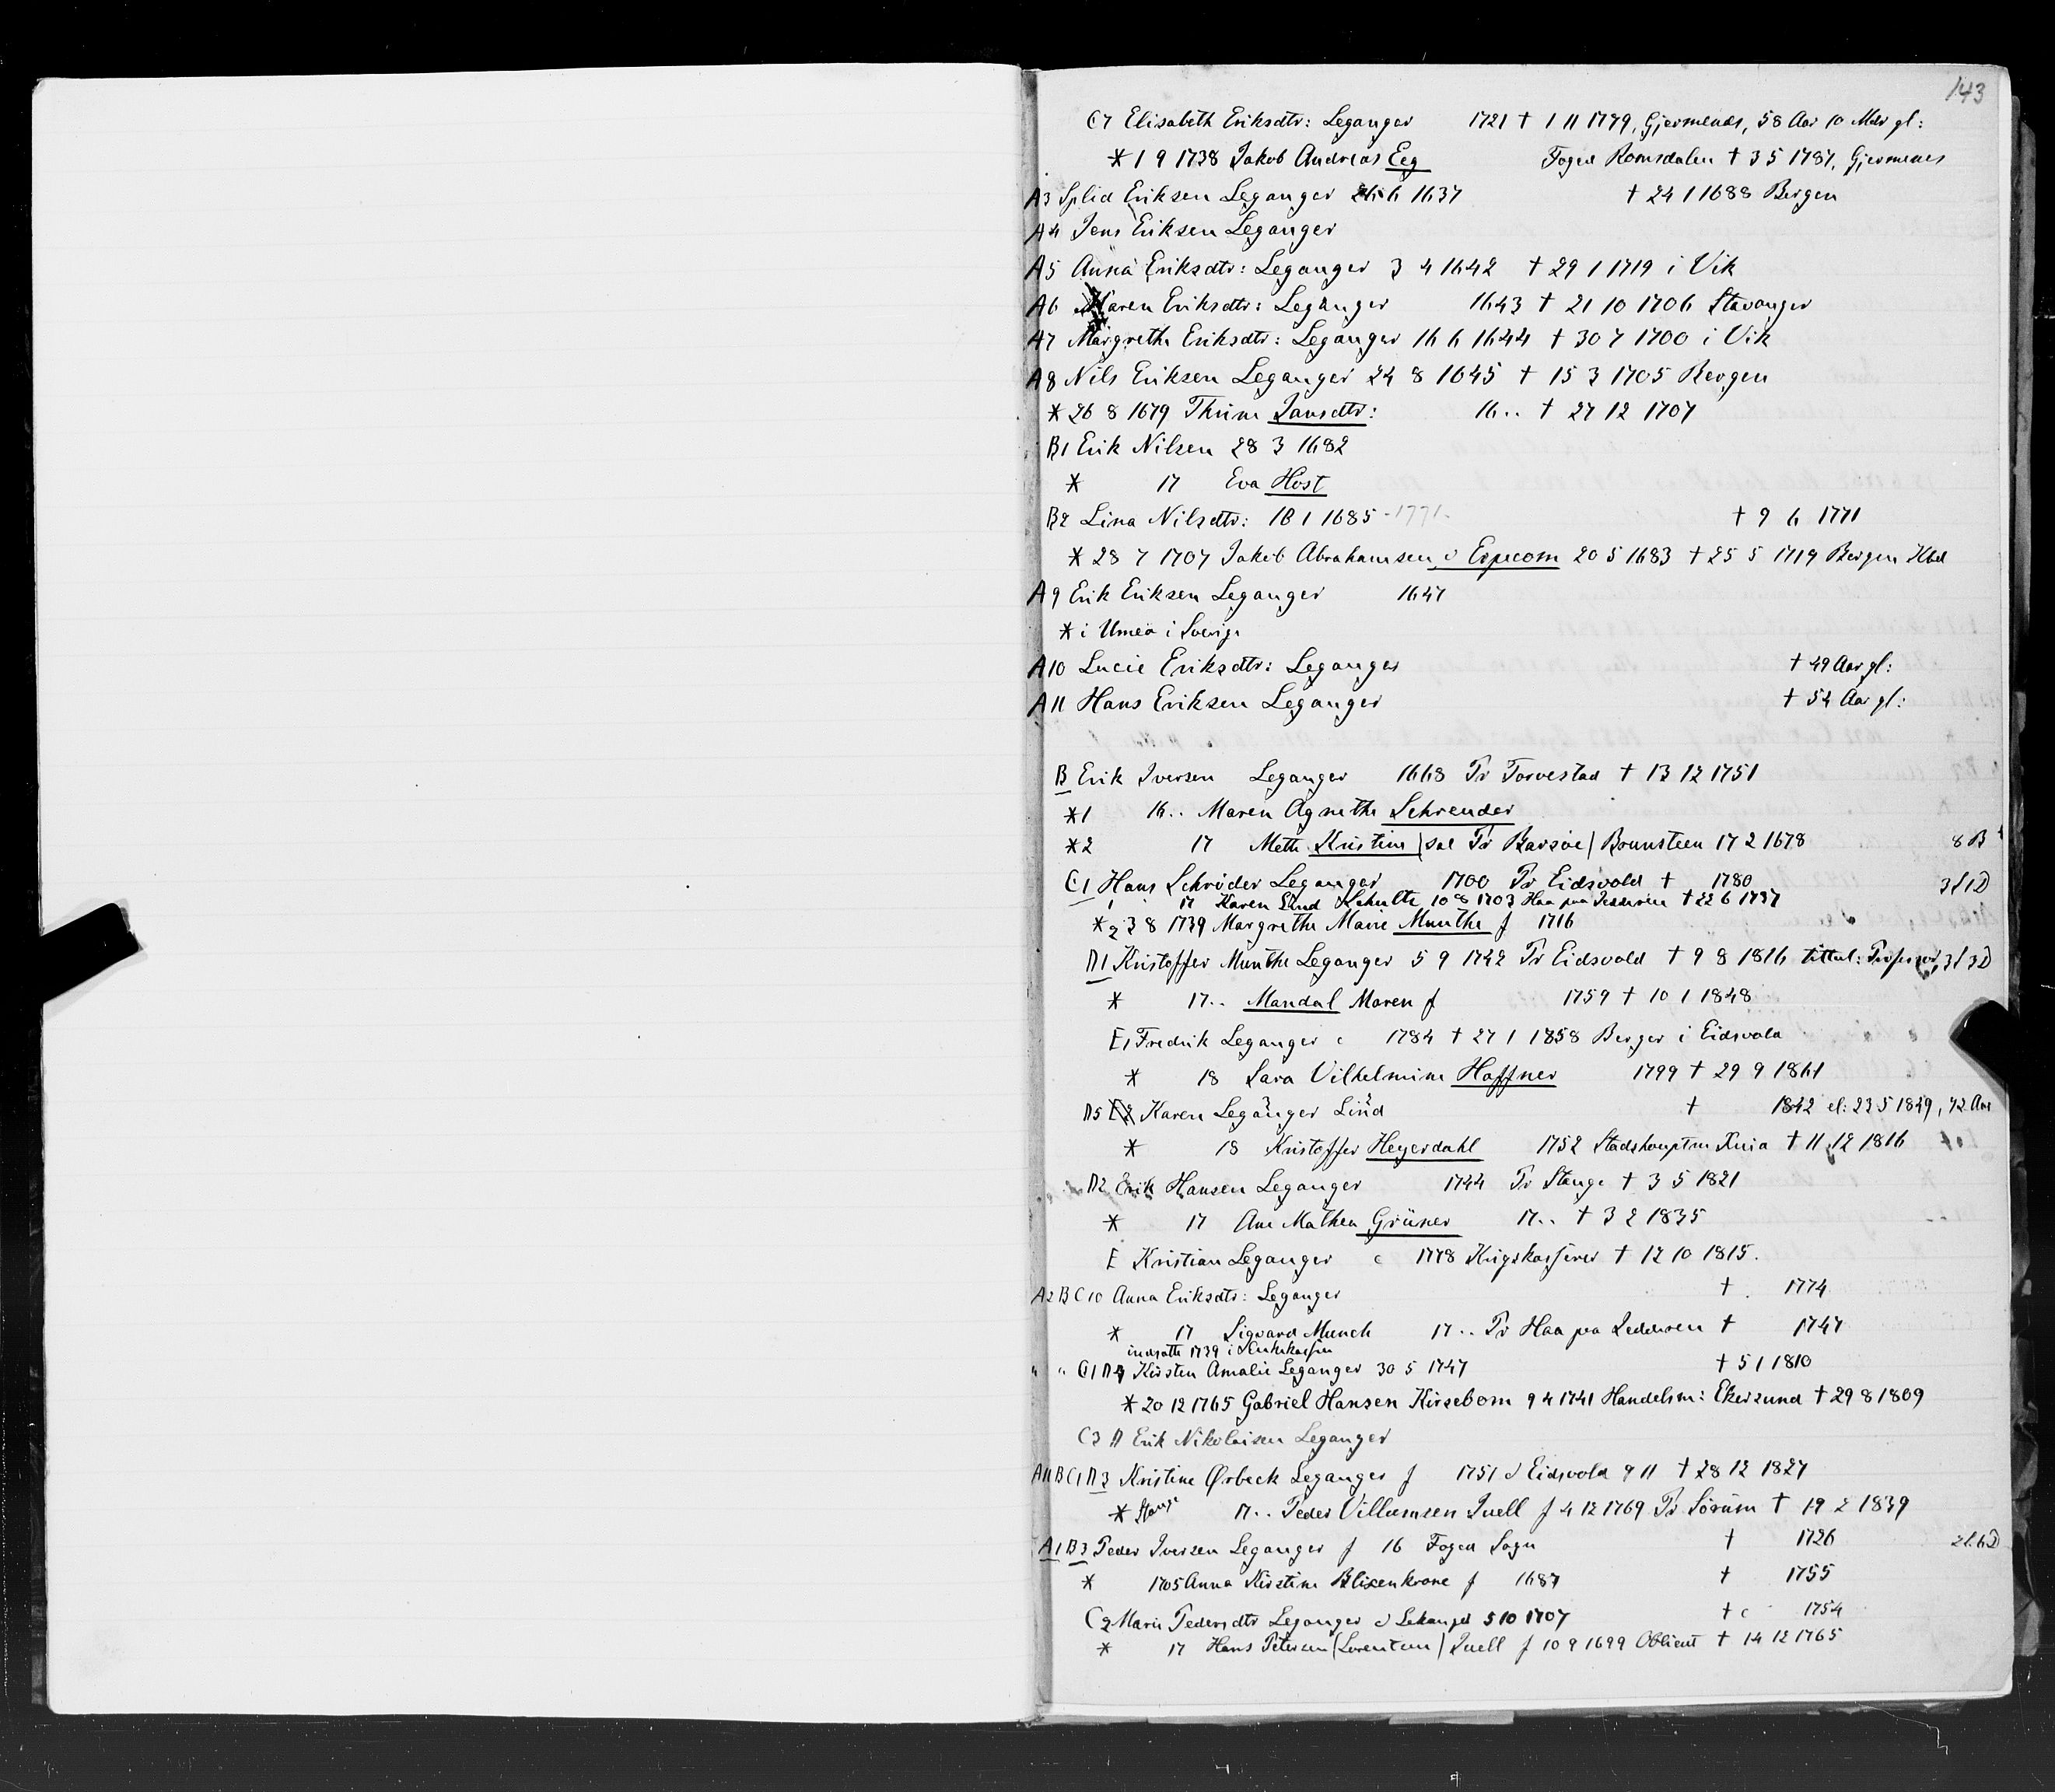 143
C7 Elisabeth Eriksdtr: Leganger 1721 † 1 11 1779, Gjermenes, 58 Aar 10 Mdr gl:
* 1 9 1738 Jakob Andreas Eeg Foged Romsdalen † 3 5 1787, Gjermenes
A3 Splid Eriksen Leganger 6 1637 † 24 1 1688 Bergen
A4 Jens Eriksen Leganger
A5 Anna Eriksdtr: Leganger 3 4 1642 † 29 1 1719 i Vik
A6 Maren Eriksdtr: Leganger 1643 † 21 10 1706 Stavanger
A7 Margrethe Eriksdtr: Leganger 16 6 1644 † 30 7 1700 i Vik
A8 Nils Eriksen Leganger 24 8 1645 † 15 3 1705 Bergen
* 26 8 1679 Thrine Jansdtr: 16.. † 27 12 1707
B1 Erik Nilsen 28 3 1682
* 17 Eva Høst
B2 Lina Nilsdtr: 18 1 1685 -1771- † 9 6 1771
* 28 7 1707 Jakob Abrahamsen 20 5 1683 † 25 5 1719 Bergen
A9 Erik Eriksen Leganger 1647
* i Umeå i Sverige
A10 Lucie Eriksdtr: Leganger † 49 Aar gl:
A11 Hans Eriksen Leganger † 54 Aar gl:
B Erik Iversen Leganger 1668 Pr Torvestad † 13 12 1751
*1 16.. Maren Agnethe Schrøuder
*2 17 Mette Kristine (sal Pr Barsøe) Brunsteen 17 2 1678 8 B
C1 Hans Schrøder Leganger 1700 Pr Eidsvold † 1780 3/1 D
1 17 Karen Lind Schulte 10 8 1703 Haa paa Jedderen † 22 6 1737
*2 3 8 1739 Margrethe Marie Munthe f 1716
D1 Kristoffer Munthe Leganger 5 9 1742 Pr Eidsvold † 9 8 1816 tittul: Professor, 3/3 D
* 17.. Mandal Maren f 1759 † 10 1 1848
E1 Fredrik Leganger c 1784 † 27 1 1858 Berger i Eidsvold
* 18 Sara Vilhelmine Haffner 1799 † 29 9 1861
D5 Karen Leganger Lind † 1842 el: 23 5 1849, 72 Aar
* 18 Kristoffer Heyerdahl 1752 Stadshauptm Kria † 11 12 1816
D2 Erik Hansen Leganger 1744 Pr Stange † 3 5 1821
* 17 Ane Mathea Grüner 17.. † 3 2 1835
E Kristian Leganger c 1778 Krigskasserer † 12 10 1815.
A2 B C10 Anna Eriksdtr: Leganger † 1774
* 17 Sigvard Munch 17.. Pr Haa paa Jedderen † 1747
indsatte 1739 i Enkekassen
" " C1 D4 Kirsten Amalie Leganger 30 5 1747 † 5 1 1810
* 20 12 1765 Gabriel Hansen Kirsebom 9 4 1741 Handelsm: Ekersund † 29 8 1809
C3 D Erik Nikolaisen Leganger
A11 B C1 D3 Kristine Ørbeck Leganger f 1751 d Eidsvold 9 11 † 28 12 1827
* Stange 17.. Peder Villumsen Juell f 4 12 1769 Pr Sörum † 19 2 1839
A1 B3 Peder Iversen Leganger f 16 Foged Sogn † 1726 2/6 D
* 1705 Anna Kirstine Blixenkrone f 1687 † 1755
C2 Marie Pedersdtr Leganger d Lekanger 5 10 1707 † c 1754
* 17 Hans Petersen (Lorentzen) Juell f 10 9 1699 Oblieut † 14 12 1765